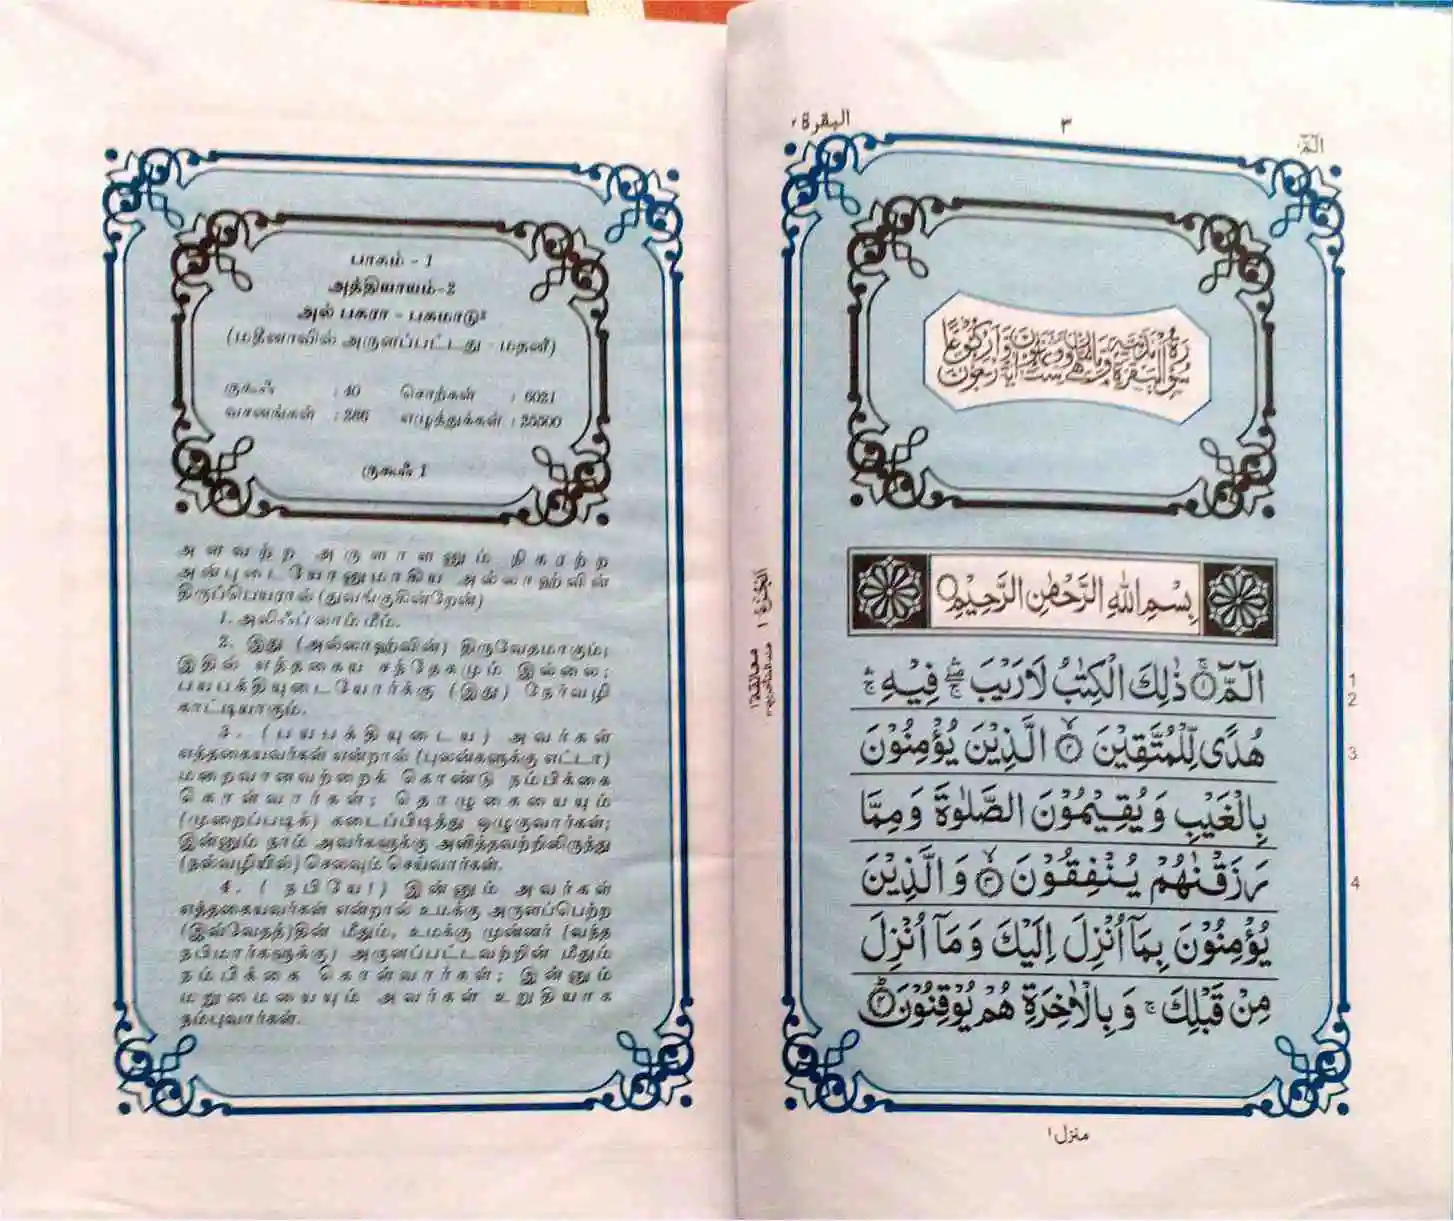 பாகம் - 1
அத்தியாயம்-2
அல் பகரா - பசுமாடு
(மதீனாவில் அருளப்பட்டது - மதனீ)
ருகூஃ : 40 சொற்கள் : 6021
வசனங்கள் : 286 எழுத்துக்கள் : 25500
ருகூஃ 1
அளவற்ற அருளாளனும் நிகரற்ற
அன்புடையோனுமாகிய அல்லாஹ்வின்
திருப்பெயரால் (துவங்குகின்றேன்)
1. அலிஃப் லாம் மீம்.
2. இது (அல்லாஹ்வின்) திருவேதமாகும்;
இதில் எத்தகைய சந்தேகமும் இல்லை;
பயபக்தியுடையோர்க்கு (இது) நேர்வழி
காட்டியாகும்.
3. (பயபக்தியுடைய) அவர்கள்
எத்தகையவர்கள் என்றால் (புலன்களுக்கு எட்டா)
மறைவானவற்றைக் கொண்டு நம்பிக்கை
கொள்வார்கள்; தொழுகையையும்
(முறைப்படிக்) கடைப்பிடித்து ஒழுகுவார்கள்;
இன்னும் நாம் அவர்களுக்கு அளித்தவற்றிலிருந்து
(நல்வழியில்) செலவும் செய்வார்கள்.
4. (நபியே!) இன்னும் அவர்கள்
எத்தகையவர்கள் என்றால் உமக்கு அருளப்பெற்ற
(இவ்வேதத்)தின் மீதும், உமக்கு முன்னர் (வந்த
நபிமார்களுக்கு) அருளப்பட்டவற்றின் மீதும்
நம்பிக்கை கொள்வார்கள்; இன்னும்
மறுமையையும் அவர்கள் உறுதியாக
நம்புவார்கள்.
البقرة ٢ ٣ الٓمّٓ ١
بِسْمِ اللّٰهِ الرَّحْمٰنِ الرَّحِيْمِ
الٓمّٓ ۚ﴿١﴾ ذٰلِكَ الْكِتٰبُ لَا رَيْبَ ۛۖۚ فِيْهِ ۛۚ 1 2
هُدًى لِّلْمُتَّقِيْنَ ۙ﴿٢﴾ الَّذِيْنَ يُؤْمِنُوْنَ 3
بِالْغَيْبِ وَيُقِيْمُوْنَ الصَّلٰوةَ وَمِمَّا
رَزَقْنٰهُمْ يُنْفِقُوْنَ ۙ﴿٣﴾ وَالَّذِيْنَ 4
يُؤْمِنُوْنَ بِمَآ اُنْزِلَ اِلَيْكَ وَمَآ اُنْزِلَ
مِنْ قَبْلِكَ ۚ وَبِالْاٰخِرَةِ هُمْ يُوْقِنُوْنَ ؕ﴿٤﴾
منزل ١